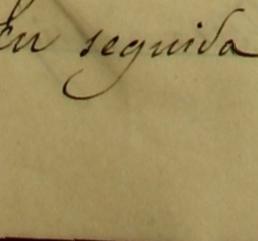 En seguida